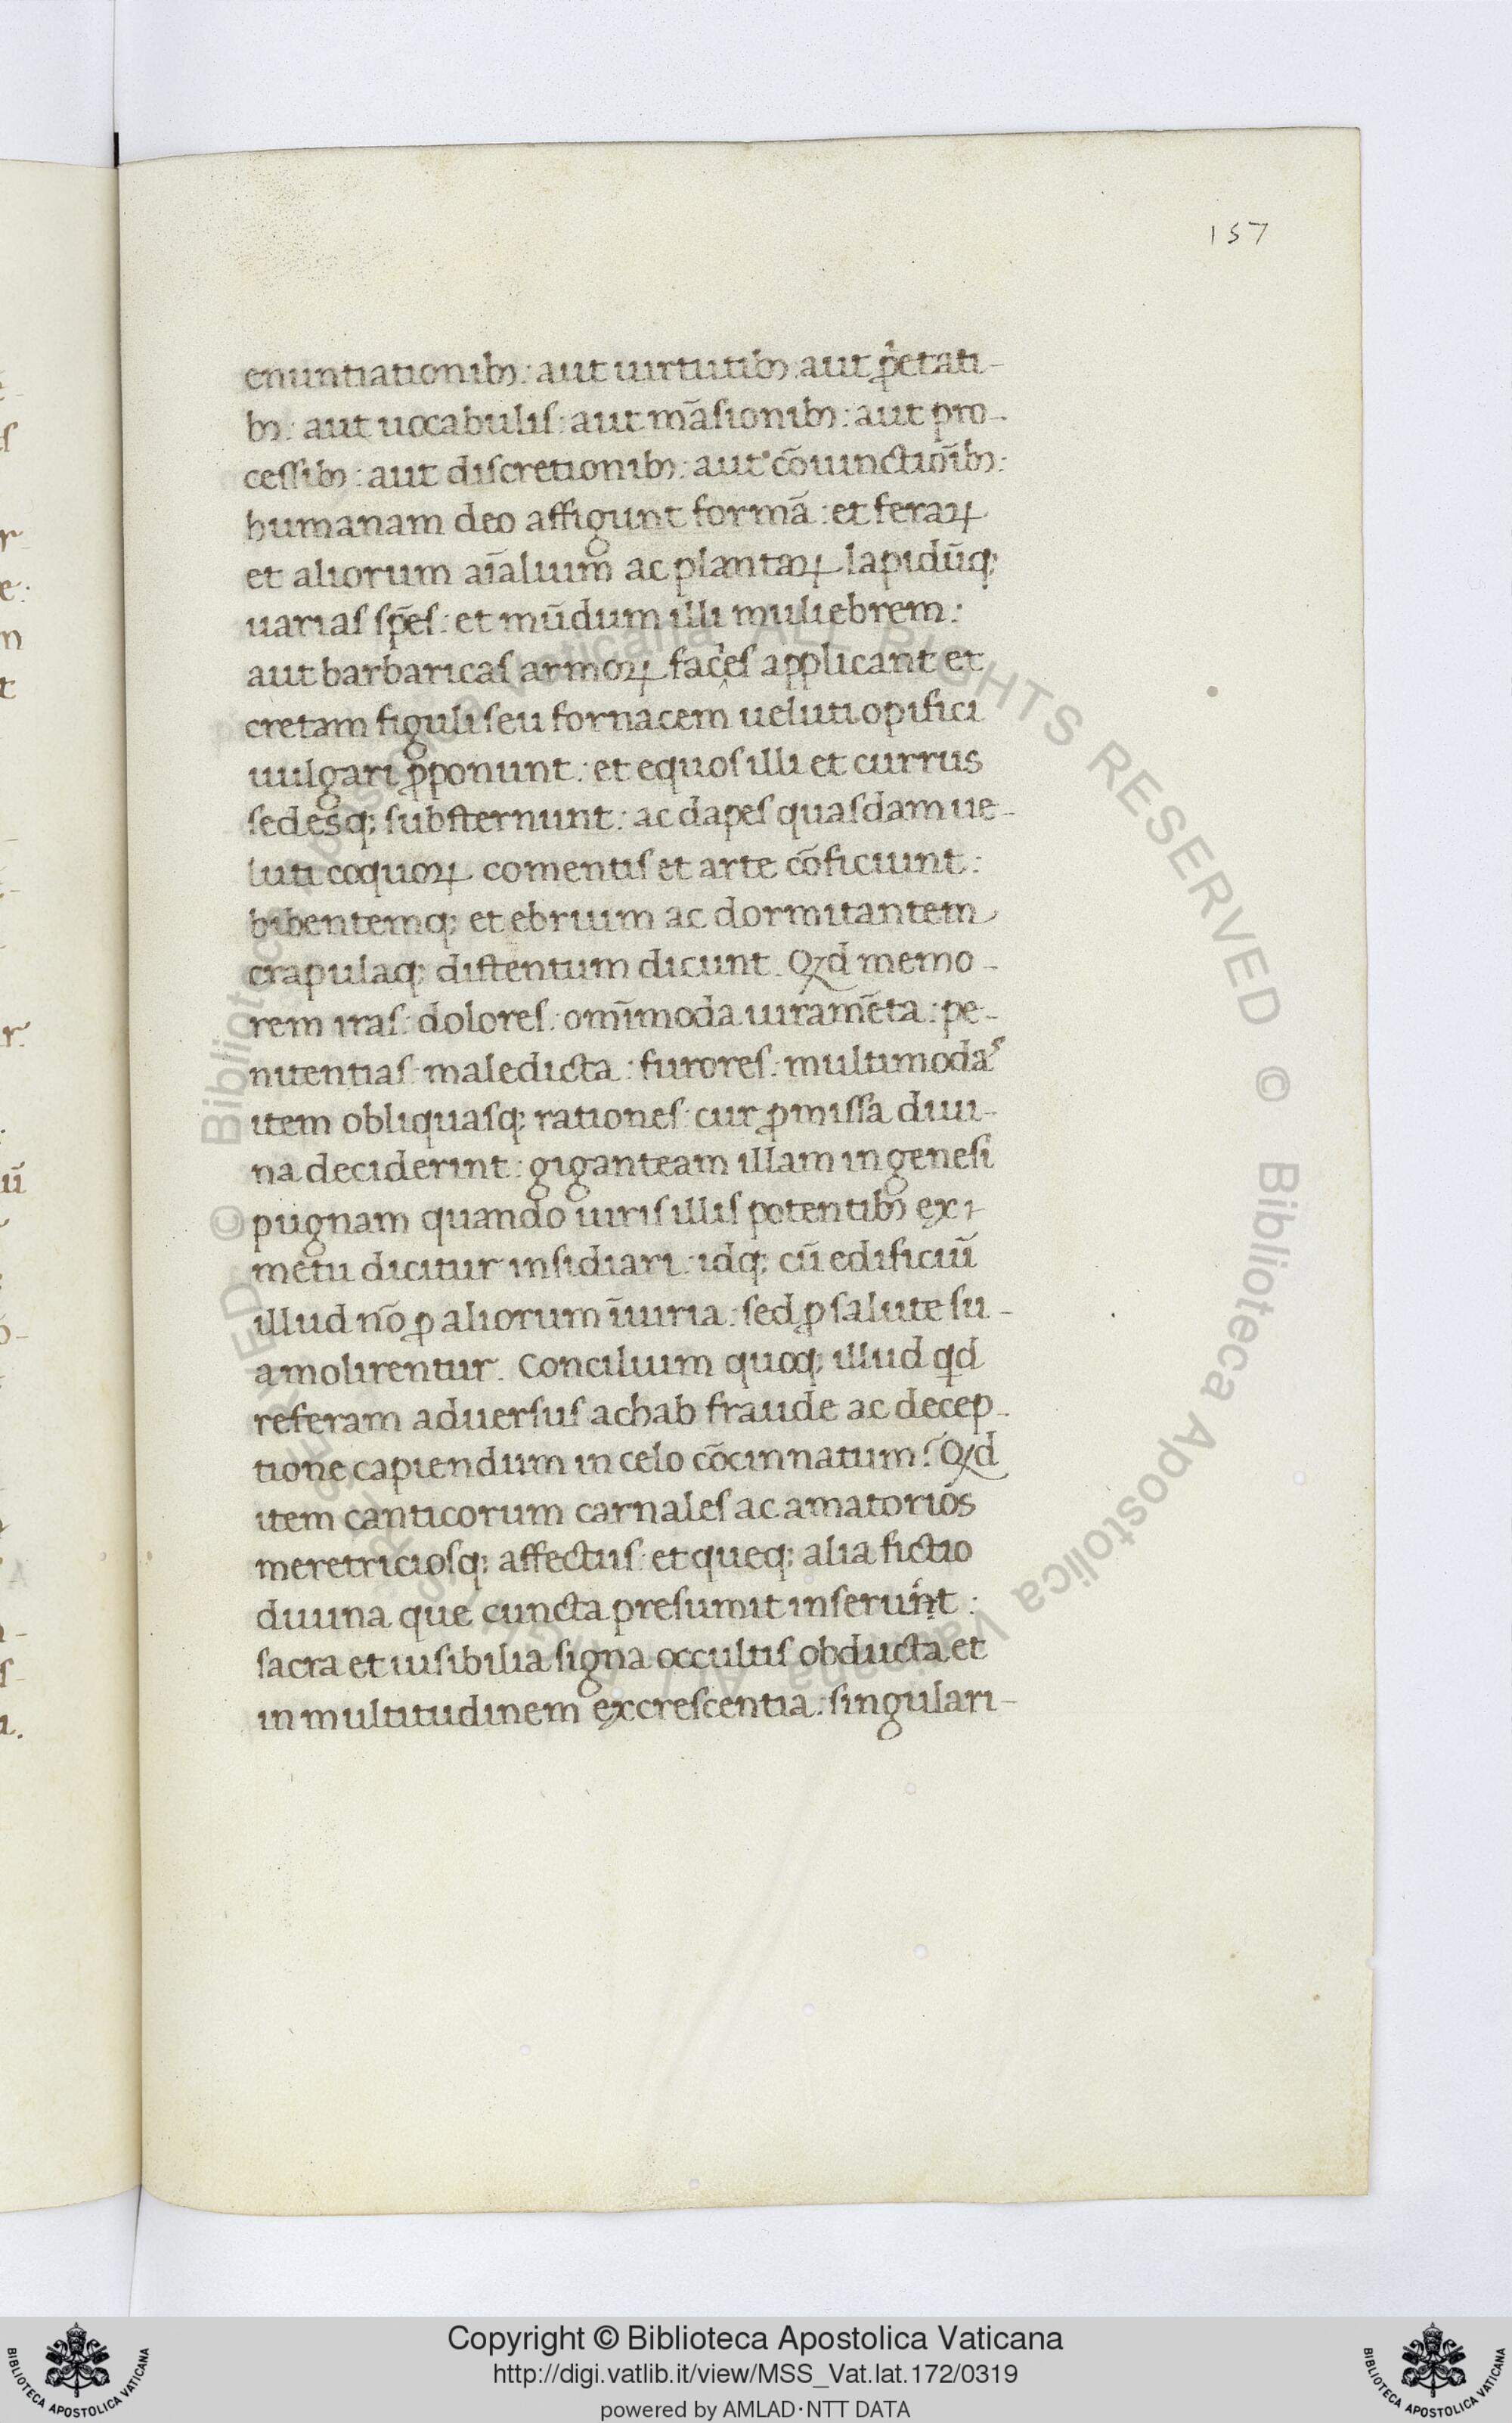 157
enuntiationibꝫ: aut uirtutibꝫ: aut ꝓp̓etati-
bꝫ: aut uocabulis: aut mãsionibꝫ: aut pro-
cessibꝫ: aut discretionibꝫ: aut cõiunctiõibꝫ:
humanam deo affigunt formã: et feraꝝ
et aliorum aĩalium ac plantaꝝ lapidũqꝫ
uarias sp̃es: et mũdum illi muliebrem:
aut barbaricas armoꝝ fac̓es applicant et
cretam figuli seu fornacem ueluti opifici
uulgari ꝓponunt: et equos illi et currus
sedesqꝫ substernunt: ac dapes quasdam ue-
luti coquoꝝ comentis et arte cõficiunt:
bibentemqꝫ et ebrium ac dormitantem
crapulaqꝫ distentum dicunt. Qꝫd memo-
rem iras: dolores: omĩmoda iuramẽta: pe-
nitentias: maledicta: furores: multimodas
item obliquasqꝫ rationes: cur ꝓmissa diui-
na deciderint: giganteam illam in genesi
pugnam quando uiris illis potentibꝫ ex
metu dicitur insidiari: idqꝫ cũ edificiũ
illud nõ ꝓ aliorum iniuria: sed ꝓ salute su-
a molirentur. Concilium quoqꝫ illud qd
referam aduersus achab fraude ac decep-
tione capiendum in celo cõcinnatum? Qꝫd
item canticorum carnales ac amatorios
meretriciosqꝫ affectus: et queqꝫ alia fictio
diuina que cuncta presumit inserunt:
sacra et uisibilia signa occultis obducta et
in multitudinem excrescentia: singulari-
Copyright © Biblioteca Apostolica Vaticana
http://digi.vatlib.it/view/MSS_Vat.lat.172/0319
powered by AMLAD·NTT DATA